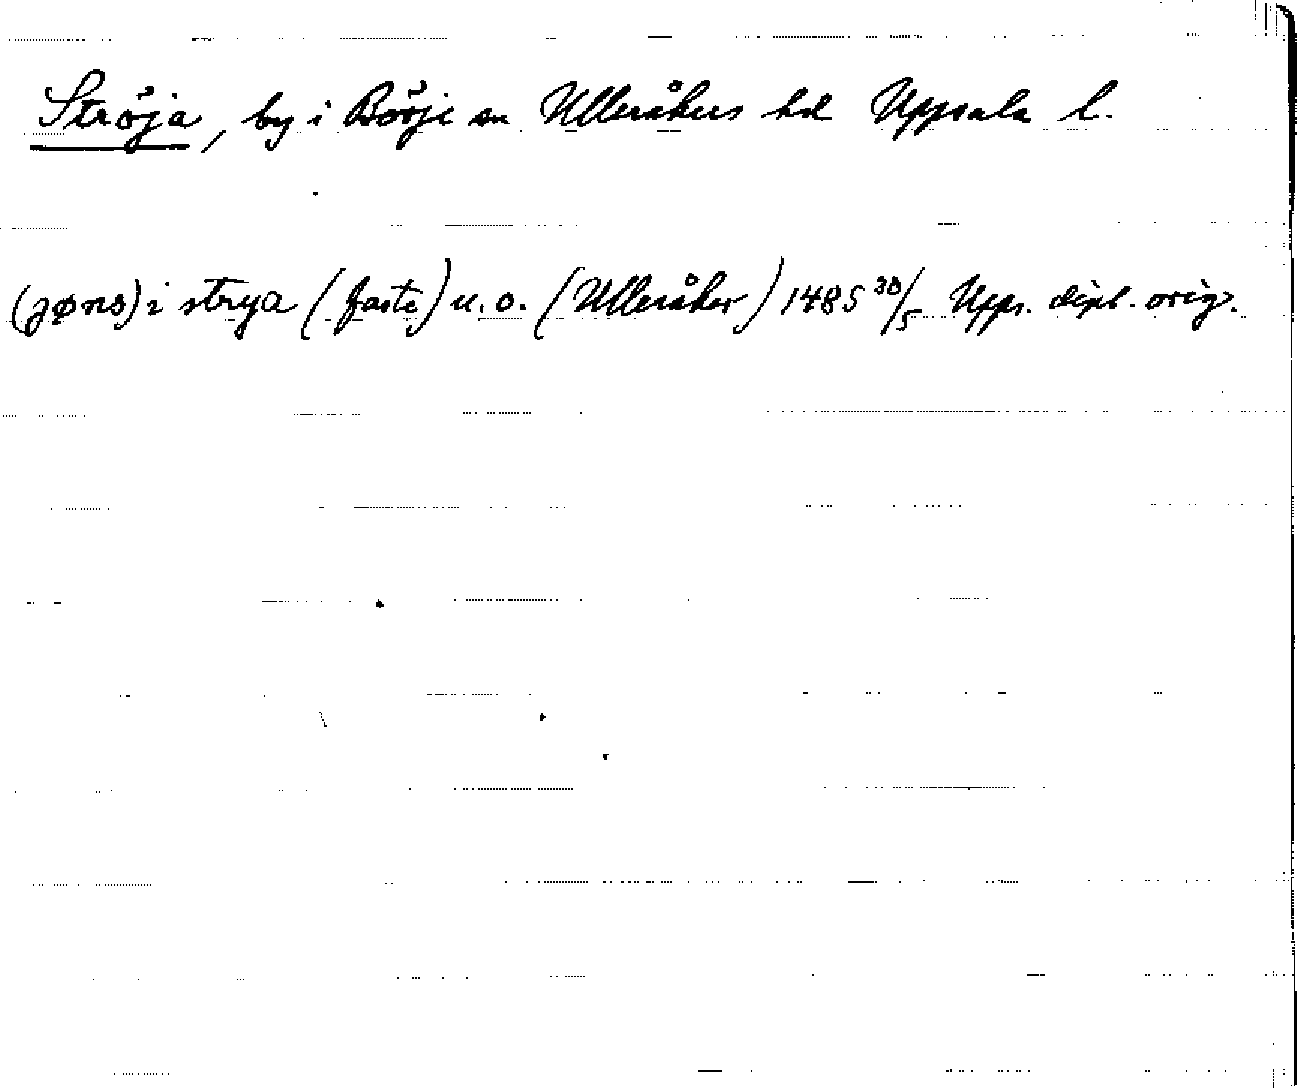 Ströja, by i Börje sn Ulleråkers hd Uppsala l.
(jøns) i strya (faste) u.o. (Ulleråker) 1485 30/5 Upps. dipl. orig.